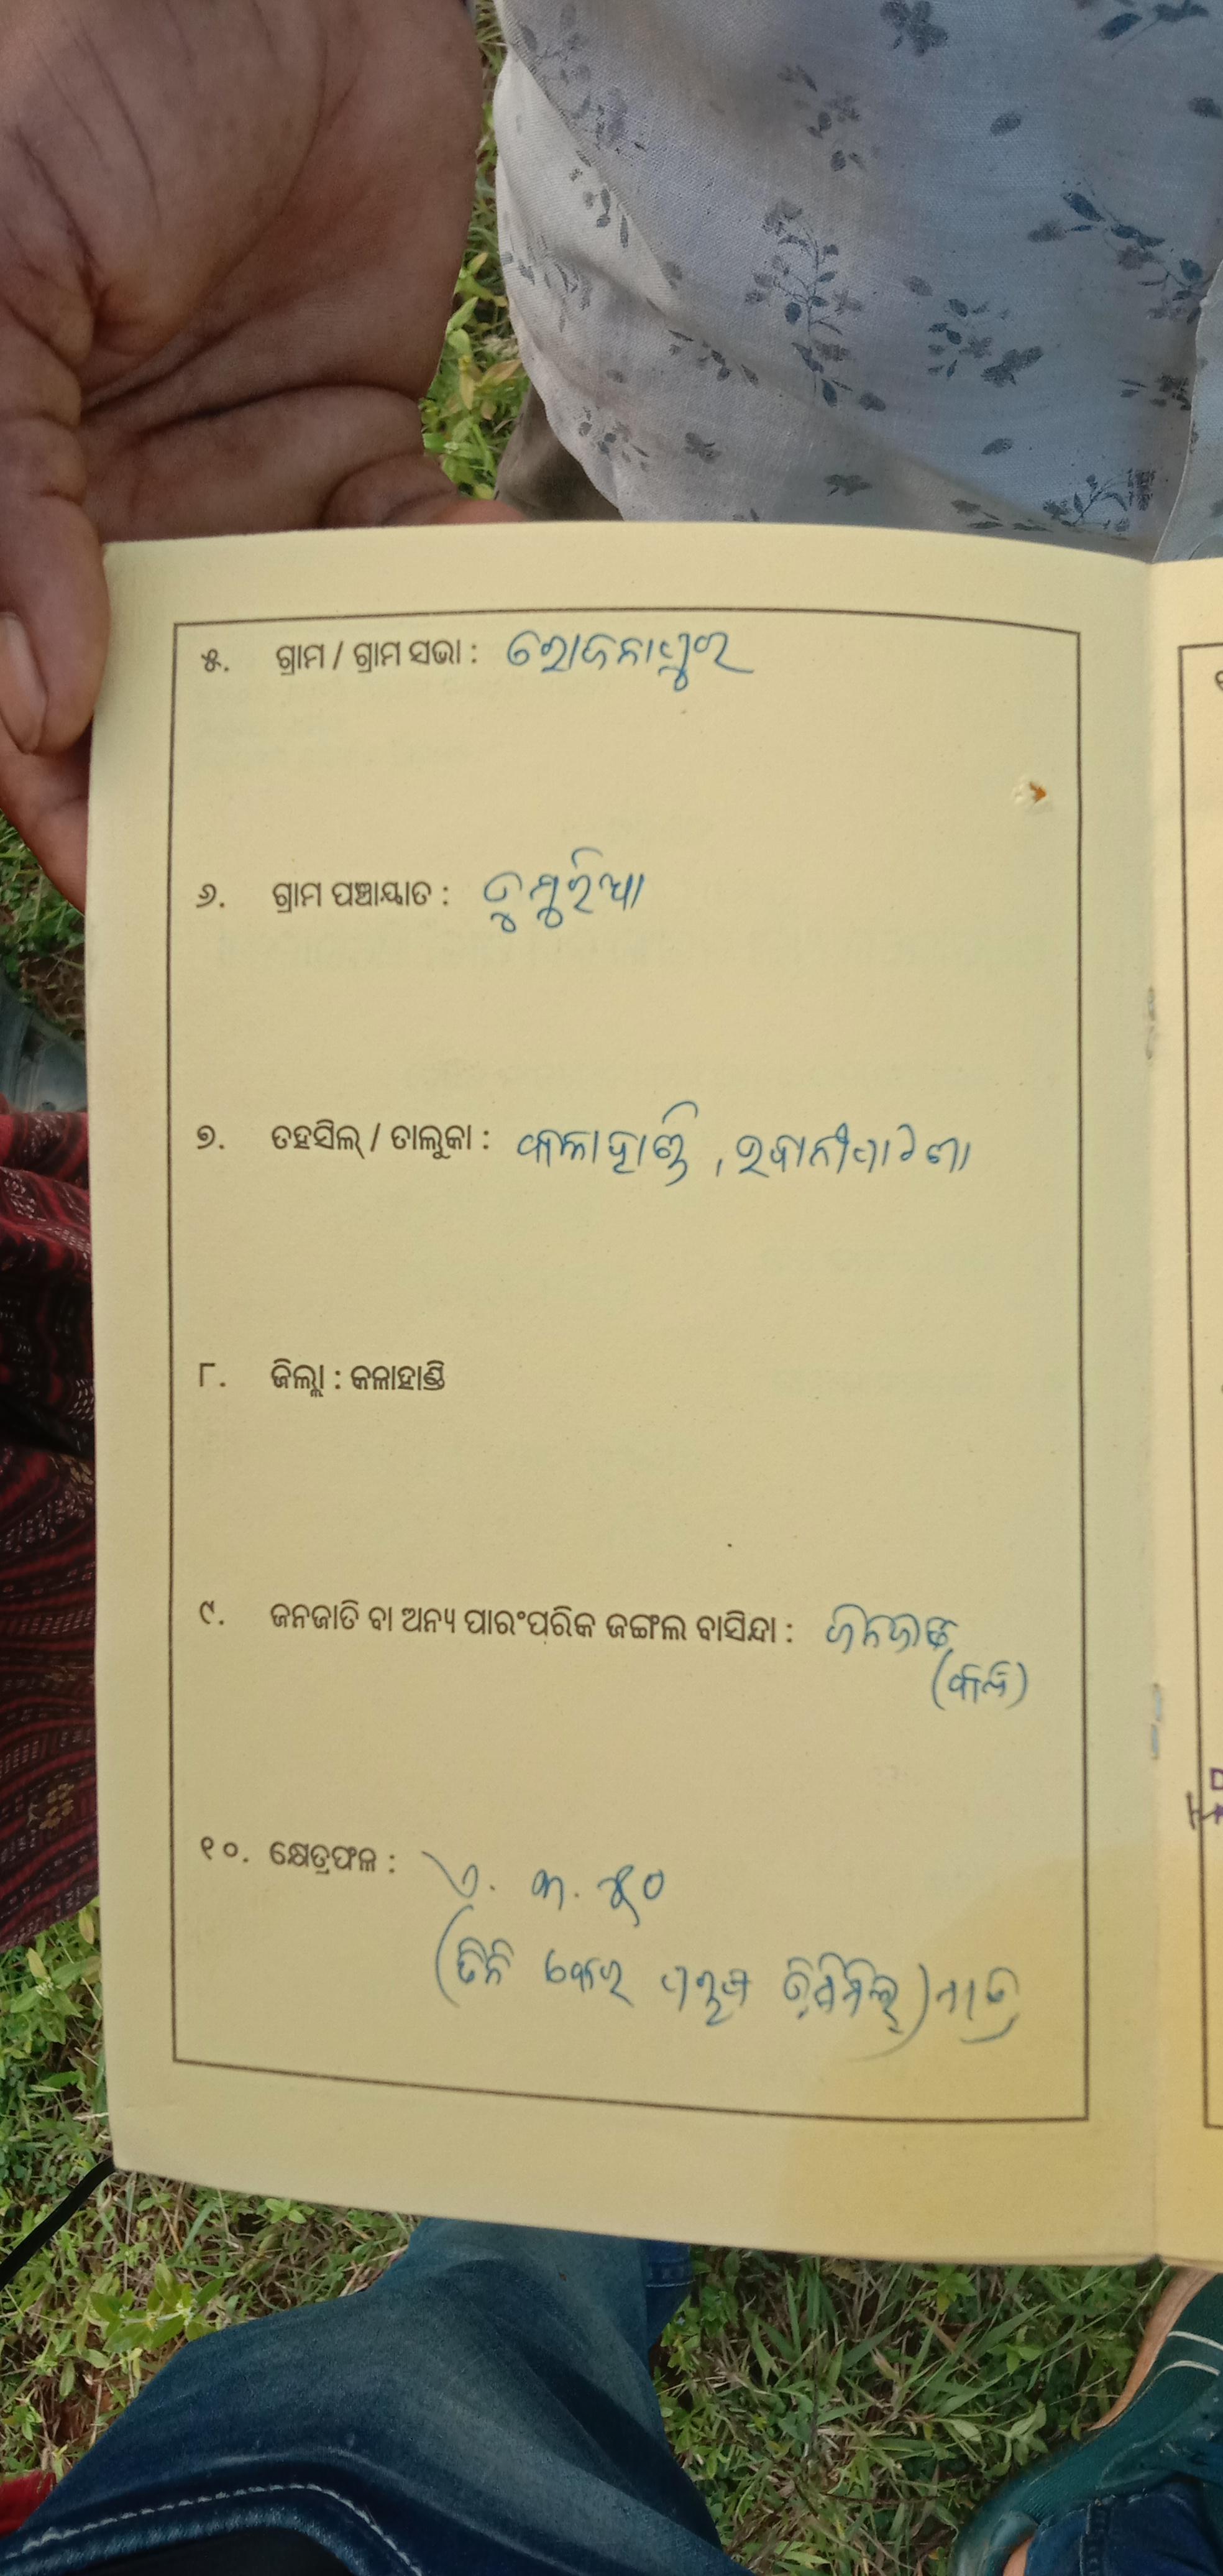 ୫. ଗ୍ରାମ / ଗ୍ରାମ ସଭା : ଭୋଜନାପୁର
୬. ଗ୍ରାମ ପଞ୍ଚାୟାତ : ଡୁମୁରିଆ
୭. ତହସିଲ୍ / ତାଲୁକା : କଳାହାଣ୍ଡି, ଭବାନୀପାଟଣା
୮. ଜିଲ୍ଲା : କଳାହାଣ୍ଡି
୯. ଜନଜାତି ବା ଅନ୍ୟ ପାରଂପରିକ ଜଙ୍ଗଲ ବାସିନ୍ଦା : ଜନଜାତି
୧୦. କ୍ଷେତ୍ରଫଳ :
(ତିନି ପଚାଶ ଡିସିମିଲ୍) ମାତ୍ର